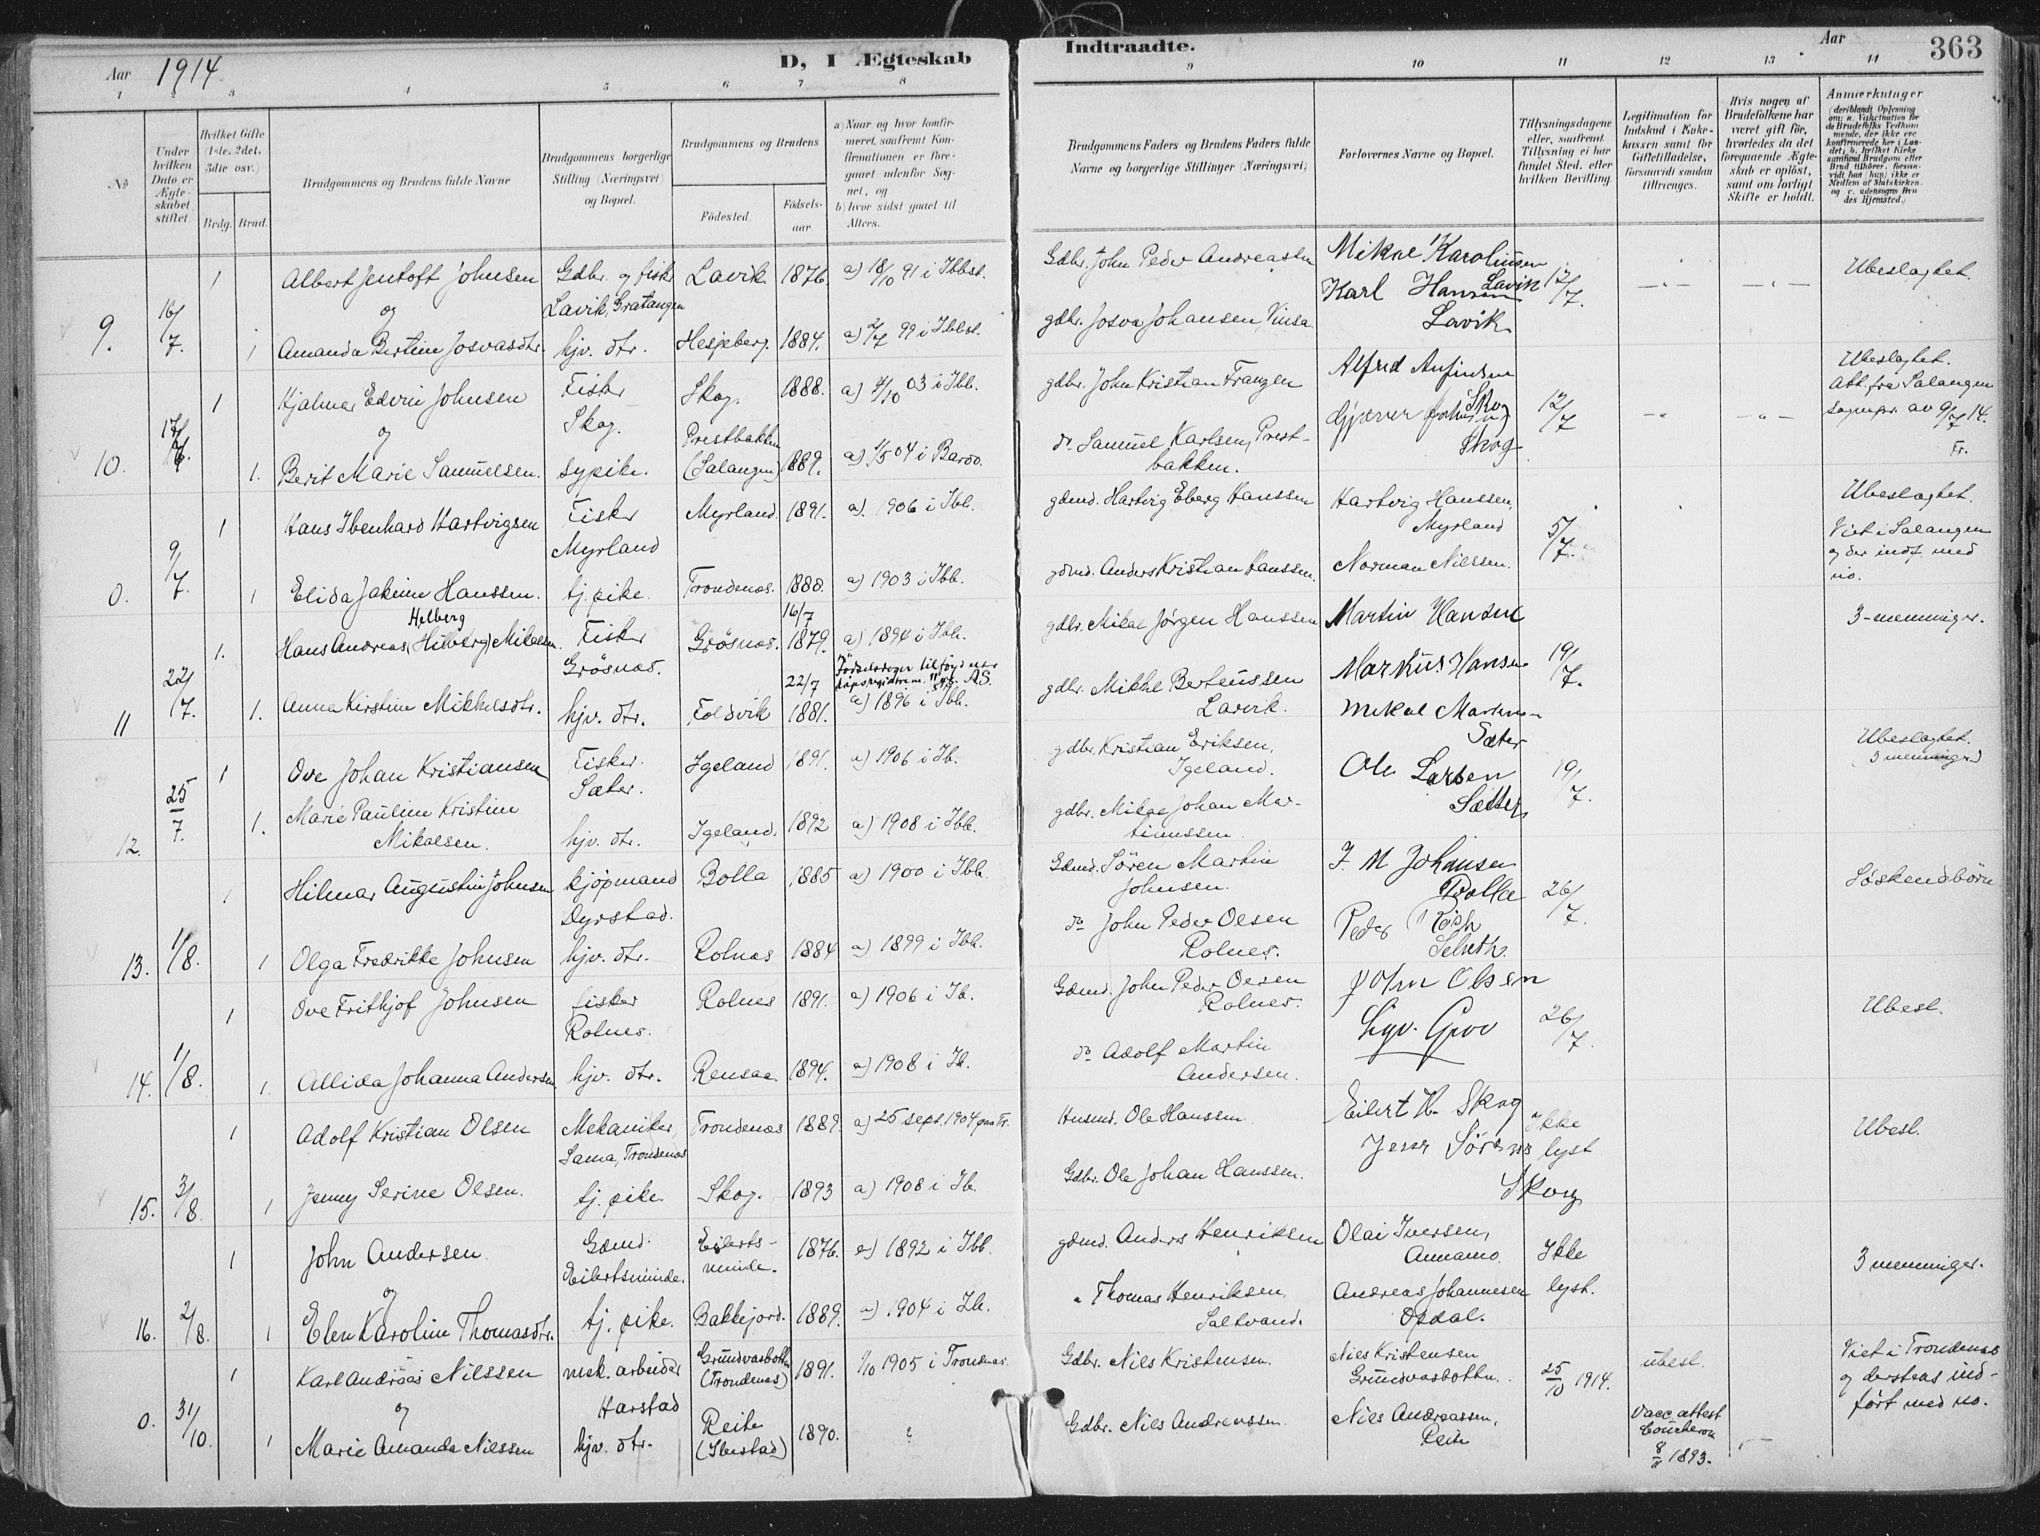 Aar 1914.
D, I Ægteskab
Indtraadte.
Aar
363
1 2 3 4 5 6 7 8 9 10 11 12 13 14
No
Under hvilken Dato er Ægteskabet stiftet.
Hvilket Gifte (1-te, 2det, 3dte osv.)
Brdg. Brud.
Brudgommens og Brudens fulde Navne
Brudgommens borgerlige Stilling (Næringsvei) og Bopæl.
Brudgommens og Brudens
Födested.
Födselsaar.
a) Naar og hvor konfirmeret, saafremt Konfirmationen er foregaaet udenfor Sognet, og
b) hvor sidst gaaet til Alters.
Brudgommens Faders og Brudens Faders fulde Navne og borgerlige Stillinger (Næringsvei)
Forlovernes Navne og Bopæl.
Tillysningsdagene eller, saafremt Tillysning ei har fundet Sted, efter hvilken Bevilling.
Legitimation for Indskud i Enkekassen samt for Giftetilladelse, forsaavidt saadan tiltrænges.
Hvis nogen af Brudefolkene har været gift för, hvorledes da det foregaaende Ægteskab er oplöst, samt om lovligt Skifte er holdt.
Anmærkninger
(deriblandt Oplysning om: a. Vakcination for de Brudefolks Vedkommende, der ikke ere konfirmerede her i Landet, b. hvilket Kirkesamfund Brudgom eller Brud tilhörer, forsaavidt han (hun) ikke er Medlem af Statskirken, og c. udensogns Brudes Hjemsted.)
9. 16/7 1 Albert Jentoft Johnsen Gdbr. og fisker Lavik, Gratangen Lavik 1876. a) 18/10 91 i Ibbst. Gdbr. John Peder Andreassen Mikal Karolinsen Lavik 12/7 Ubeslagtet.
og
Karl Hansen Lavik
1 Amanda Bertine Josvasdtr. hjv. dtr. Hesjeberg. 1884. a) 2/7 99 i Ibbst. gdbr. Josva Johansen
10. 17/7 1 Hjalmar Edvin Johnsen Fisker Skog. Skog. 1888. a) 4/10 03 i Ibb. gdbr. John Kristian Franzen Alfred Anfinsen Skog 12/7 Ubeslagtet.
Att. fra Salangen sognepr. av 9/7 14. Fr.
og
1. Berit Marie Samuelsen. sypike. Prestbakken (Salangen) 1889. a) 1/5 04 i Bardo. do Samuel Karlsen, Prestbakken. Skog
0. 9/7 1 Hans Ibenhard Hartvigsen Fisker Myrland Myrland. 1891. a). 1906 i Ibb. gdmd. Hartvig Eberg Hanssen Hartvig Hanssen, Myrland 5/7. Ubeslagtet.
Viet i Salangen og der indf. med no.
1 Elida Jakine Hanssen. tj. pike. Trondenæs. 1880. a) 1903 i Ibb. gdmd. Anders Kristian Hanssen. Norman Nilssen.
Helberg
11 22/7. 1. Hans Andreas (Hilberg) Mikalsen. Fisker Grøsnæs. Grøsnæs. 16/7 1879. a) 1894 i Ibb. gdbr. Mikal Jørgen Hanssen Martin Hansen 19/7. 3-menninger.
Fødselsdager tilføyd etter AS.
1. Anna Kirstine Mikkelsdtr. hjv. dtr. Foldvik 22/7 1881. a) 1896 i Ibb. gdbr. Mikkel Berteussen Lavik. Markus Hansen
12. 25/7. 1 Ove Johan Kristiansen Fisker. Sæter. Igeland 1891. a) 1906 i Ib. gdbr. Kristian Eriksen, Igeland. Mikal Martinsen Sæter 19/7. Ubeslagtet.
(3 menninger)
1. Marie Pauline Kristine Mikalsen. hjv. dtr. Igeland. 1892 a) 1908 i Ibb. gdbr. Mikal Johan Martinussen. Ole Larsen Sætter
13. 1/8. 1 Hilmar Augustin Johnsen kjøpmand Dyrstad. Bolla 1885 a) 1900 i Ibb. Gdmd. Søren Martin Johnsen. J. M Johansen Bolla 26/7. Søskendebørn
1 Olga Fredrikke Johnsen hjv. dtr. Rolnæs 1884 a) 1899 i Ibb. do John Peder Olsen Rolnes. Peder
14. 1/8. 1 Ove Frithjof Johnsen fisker Rolnes. Rolnes 1891. a) 1906 i Ib. Gdmd. John Peder Olsen Rolnes. John Olsen 26/7. Ubesl.
1. Allida Johanna Andersen hjv. dtr. Rensaa. 1894. a) 1908 i Ib. do Adolf Martin Andersen.
15. 3/8. 1 Adolf Kristian Olsen Mekaniker, Sama, Trondenæs Trondenæs 1889. a) 25 sept. 1904 Husmd. Ole Hanssen. Eilert K. Skog Ikke lyst Ubesl.
1 Jenny Serine Olsen. tj. pike. Skog. 1893 a) 1908 i Ib. Gdbr. Ole Johan Hanssen. Skog
16. 2/8. 1 John Andersen. Gdmd. Eilertsminde. Eilertsminde. 1876. a) 1892 i Ibb. gdmd. Anders Henriksen Olai Iversen, Annamo. Ikke lyst. 3 menninger.
og
1 Elen Karoline Thomasdtr. tj. pike. Bakkejord. 1889. a) 1904 i Ib. " Thomas Henriksen, Saltvand. Andreas Johannesen Opdal.
0. 31/10. 1 Karl Andreas Nilssen mek. arbeider Harstad Grundvasbotten (Trondenæs) 1891. 1/10 1905 i Trondenæs. Gdbr. Nils Kristensen. Nils Kristensen Grundvasbotten. 25/10 1914. ubesl. Viet i Trondenæs og dersteds indført med no.
og
1 Marie Amanda Nilssen hjv. dtr. Reite (Ibestad) 1890. ? Gdbr. Nils Andreassen. Nils Andreassen, Reite Vacc. attest Coucheron 8/11 1893.